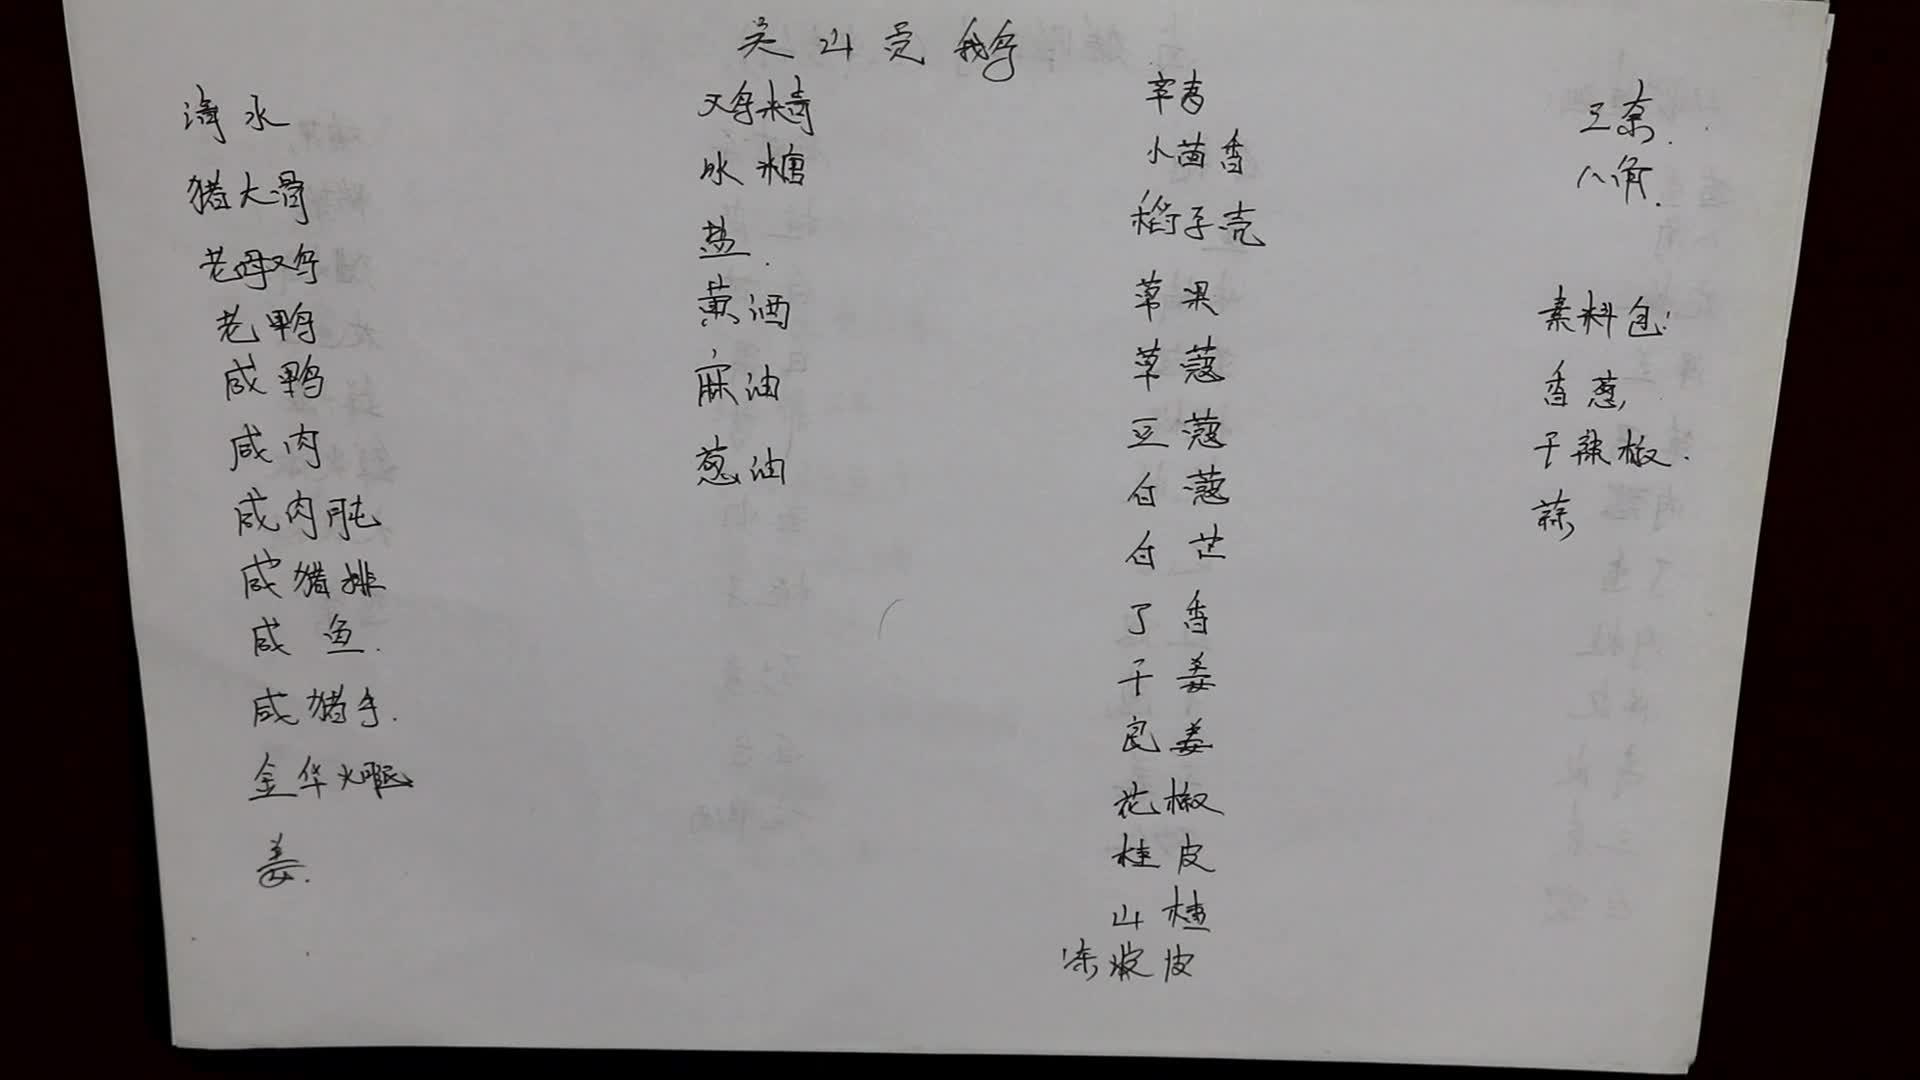 吴山贡鹅
清水
猪大骨
老母鸡
老鸭
咸鸭
咸肉
咸肉肫
咸猪排
咸鱼.
咸猪手.
金华火腿
姜.
鸡精
冰糖
盐.
黄酒
麻油
葱油
小茴香
稻子壳
草果
草蔻
豆蔻
白蔻
白芷
丁香
干姜
良姜
花椒
桂皮
山楂
皮
三奈.
八角.
素料包:
香葱
干辣椒.
蒜